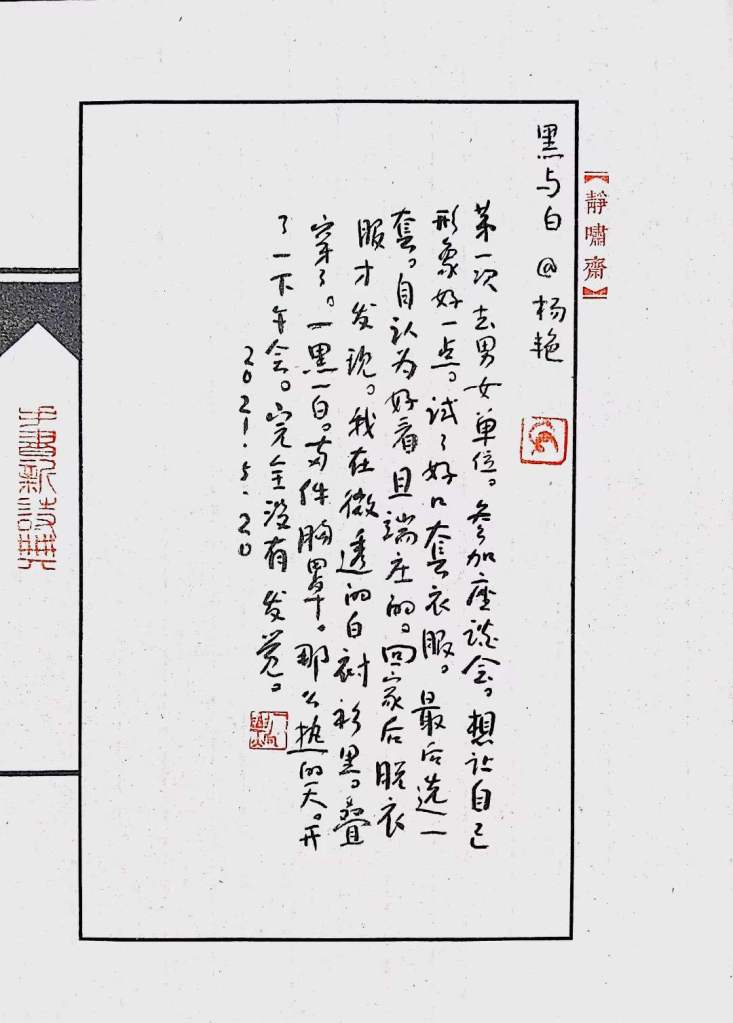 【靜嘯齋】
黑与白 @杨艳
第一次去男女单位。参加座谈会。想让自己
形象好一点。试了好几套衣服。最后选一
套。自认为好看且端庄的。回家后脱衣
服才发现。我在微透的白衬衫里。叠
穿了。一黑一白。两件胸罩。那么热的天。开
了一下午会。完全没有发觉。
2021.5.20
手書新詩典